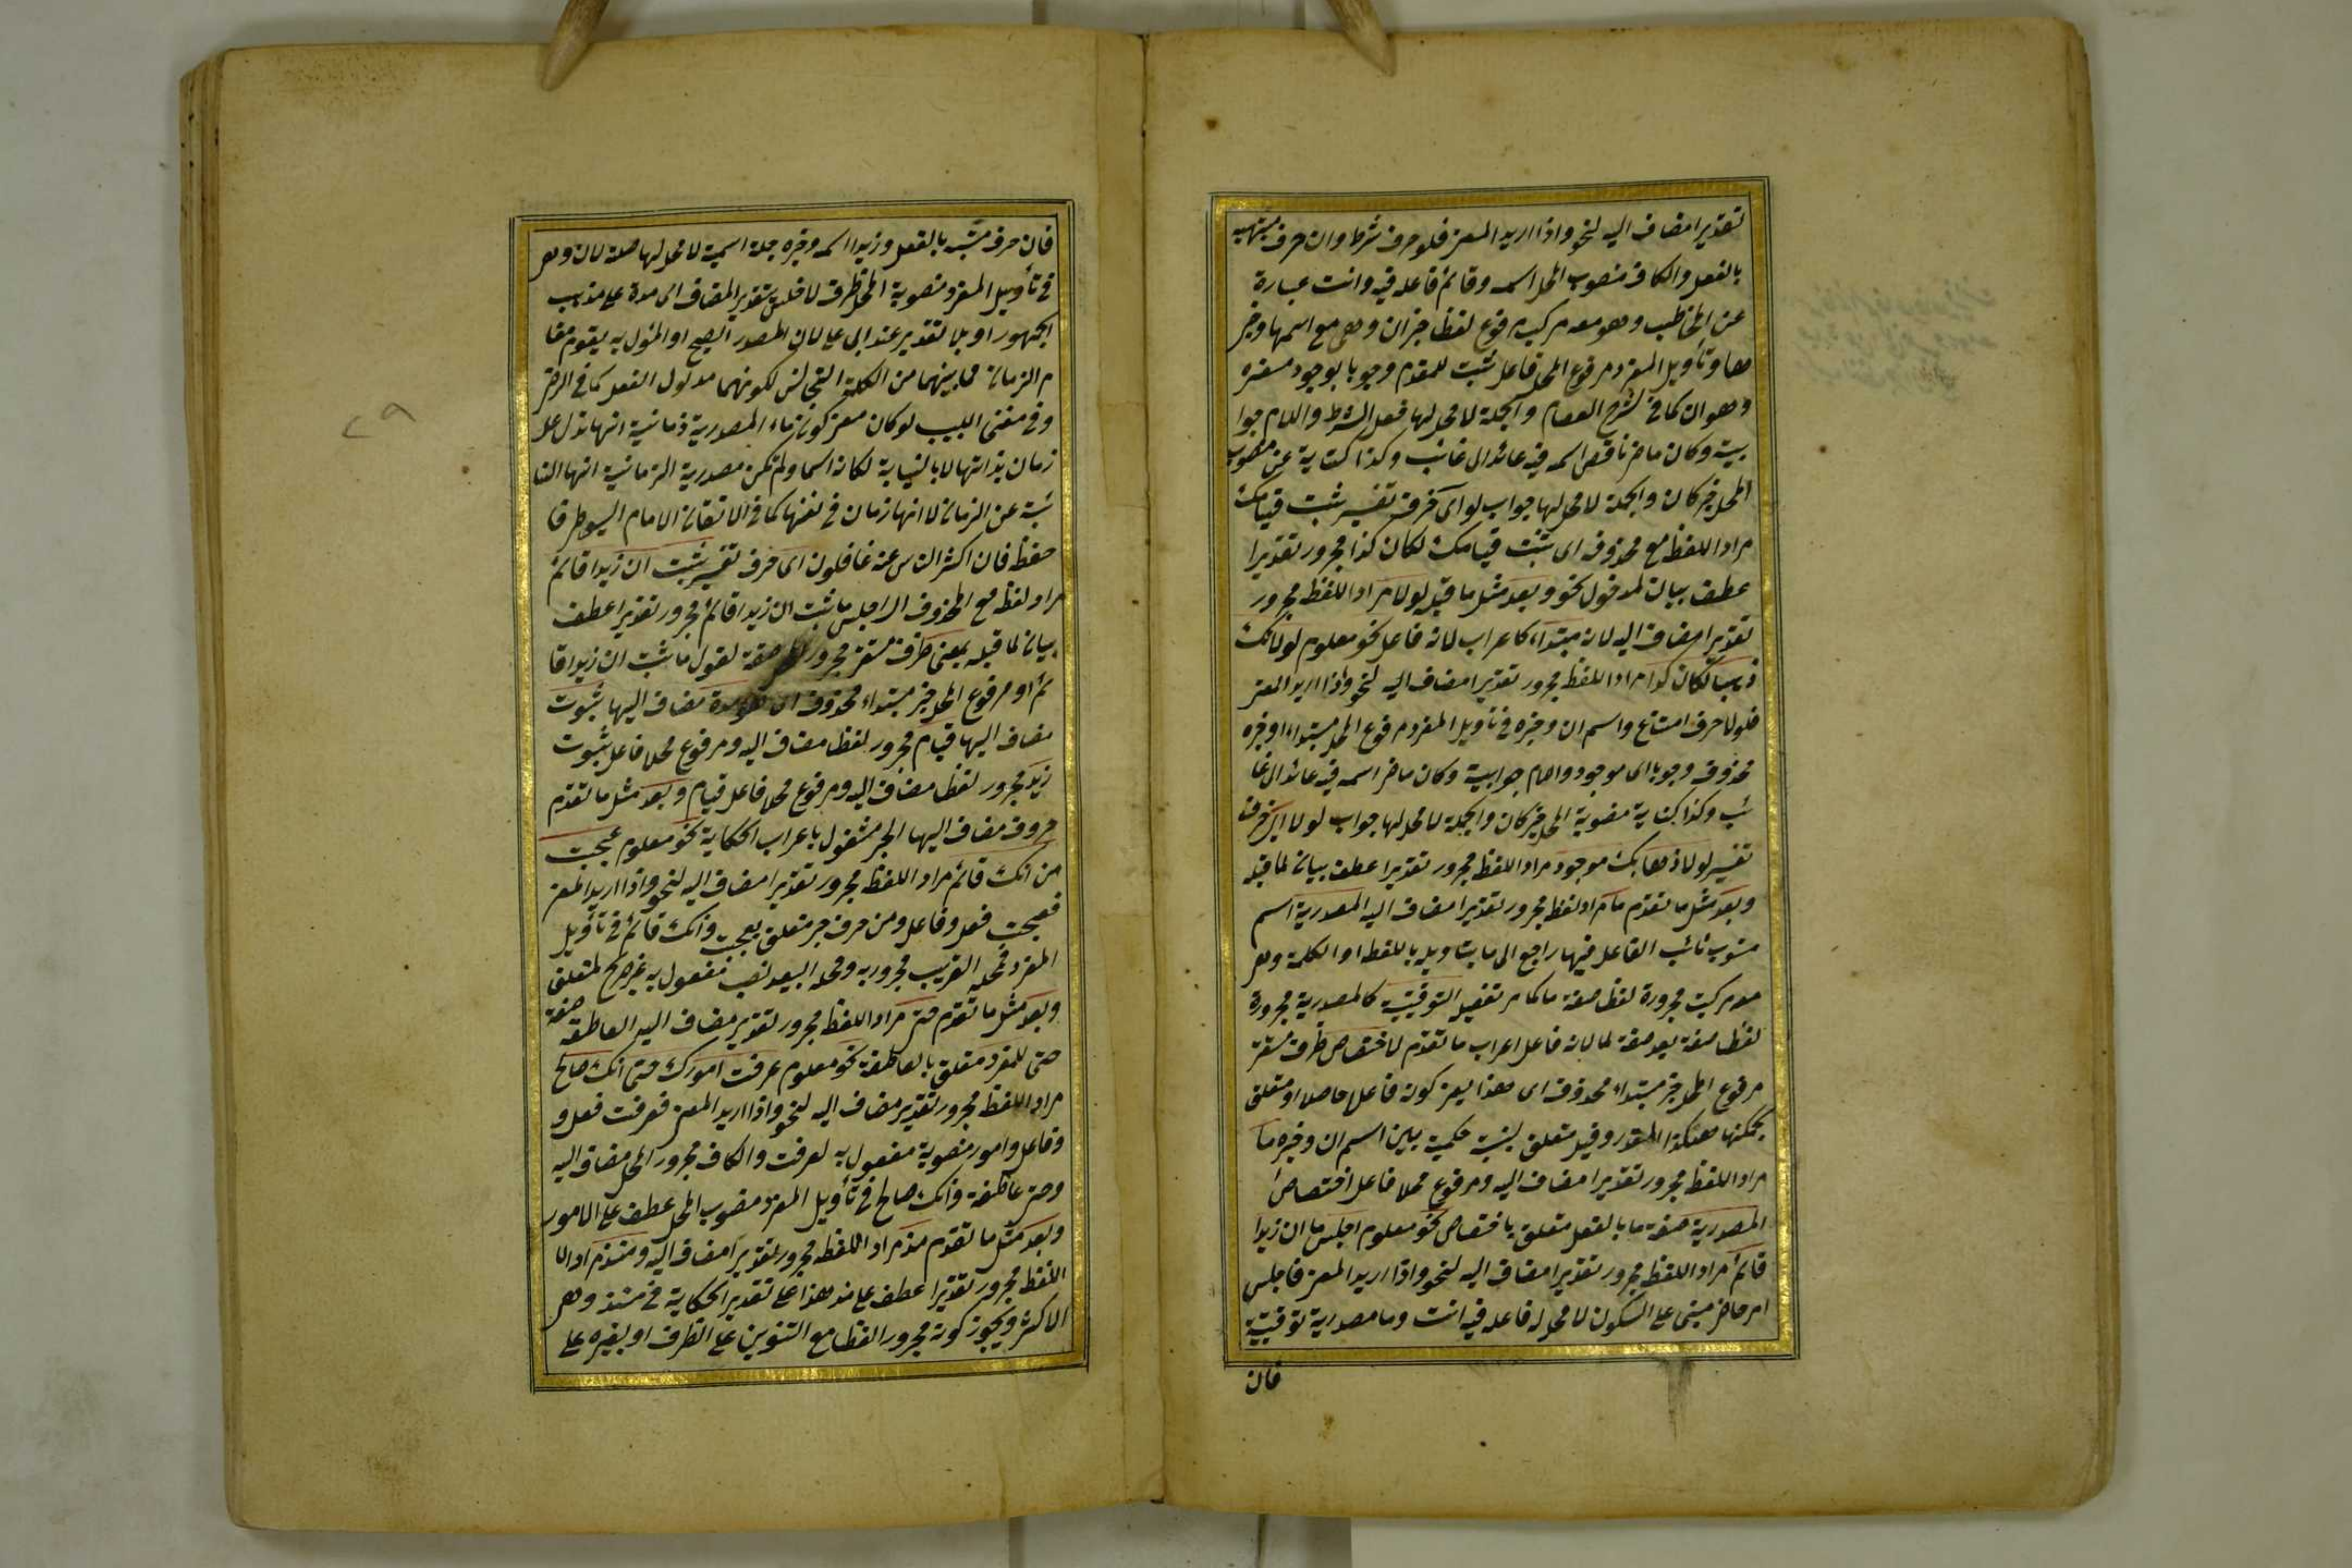 تقديرا مضاف اليه لنحو واذا اريد المعنى فلو حرف شرط وان حرف مشبهة
بالفعل والكاف منصوب المحل اسمه وقائم فاعله فيه وانت عبارة
عن المخاطب وهو معه مركب مرفوع لفظا خبر ان وهى مع اسمها وخبر
ها وتأويل المفرد مرفوع المحل فاعل ثبت المقدم وجوبا بوجود مفسره
وهو ان كما فى شرح العصام والجملة لا محل لها فعل الشرط واللام جوا
بية وكان ماض ناقص اسمه فيه عائد الى غائب وكذا كناية عن منصوب
المحل خبر كان والجملة لا محل لها جواب لو اى حرف تفسير ثبت قيامك
مراد اللفظ مع محذوف اى ثبت قيامك لكان كذا مجرور تقديرا
عطف بيان لمدخول نحو وبعد مثل ما قبله لولا مراد اللفظ مجرور
تقديرا مضاف اليه لانه مبتداء كاعراب لانه فاعل نحو معلوم لولا انك
ذهب لكان كذا مراد اللفظ مجرور تقديرا مضاف اليه لنحو واذا اريد المعنى
فلولا حرف امتناع واسم ان وخبره فى تأويل المفرد مرفوع المحل مبتداء وخبره
محذوف وجوبا اى موجود واللام جوابية وكان ماض اسمه فيه عائد الى غا
ئب وكذا كناية منصوبة المحل خبر كان والجملة لا محل لها جواب لولا اى حرف
تفسير لولا ذهابك موجود مراد اللفظ مجرور تقديرا عطف بيان لما قبله
وبعد مثل ما تقدم ما مراد لفظ مجرور تقديرا مضاف اليه المصدرية اسم
منسوب نائب الفاعل فيها راجع الى ما بتأويله باللفظ او الكلمة وهى
معه مركبة مجرورة لفظا صفة ما كما مر تفصيل التوقيتية كالمصدرية مجرورة
لفظا صفة بعد صفة لما لانه فاعل اعراب ما تقدم لاختصاص ظرف مستقر
مرفوع المحل خبر مبتداء محذوف اى هذا يعنى كونه فاعلا حاصلا او متعلق
بحكمها هكذا المقدر وقيل متعلق بنسبة حكمية بين اسم ان وخبره ما
مراد اللفظ مجرور تقديرا مضاف اليه ومرفوع محلا فاعل اختصاص
المصدرية صفة ما بالفعل متعلق باختصاص نحو معلوم اجلس ما ان زيدا
قائم مراد اللفظ مجرور تقديرا مضاف اليه لنحو واذا اريد المعنى فاجلس
امر حاضر مبنى على السكون لا محل له فاعله فيه انت وما مصدرية توقيتية
فان
فان حرف مشبه بالفعل وزيدا اسمه وخبره جملة اسمية لا محل لها صلة لان وهى
فى تأويل المفرد منصوبة المحل ظرف لاجلس بتقدير المضاف اى مدة على مذهب
الجمهور او بلا تقدير عند ابى على لان المصدر الصريح او المؤل به يقوم مقا
م الزمان لما بينهما من الكلمة التجانس لكونهما مدلول الفعل كما فى الرضى
وفى مغنى اللبيب لو كان معنى كون ماء المصدرية زمانية انها تدل على
زمان بذاتها لا بالنيابة لكانت اسما ولم تكن مصدرية الزمانية انها النا
ئبة عن الزمان لا انها زمان فى نفسها كما فى الاتقان الامام السيوطى فا
حفظ فان اكثر الناس عنه غافلون اى حرف تفسير ثبت ان زيدا قائم
مراد لفظ مع المحذوف اى اجلس ما ثبت ان زيدا قائم مجرور تقديرا عطف
بيان لما قبله بمعنى ظرف مستقر مجرور المحل صفة لقول ما ثبت ان زيدا قا
ئم او مرفوع المحل خبر مبتداء محذوف اى هو مدة مضاف اليها ثبوت
مضاف اليها قيام مجرور لفظا مضاف اليه ومرفوع محلا فاعل ثبوت
زيد مجرور لفظا مضاف اليه ومرفوع محلا فاعل قيام وبعد مثل ما تقدم
حروف مضاف اليها الجر مشغول باعراب الحكاية نحو معلوم عجبت
من انك قائم مراد اللفظ مجرور تقديرا مضاف اليه لنحو واذا اريد المعنى
فعجبت فعل وفاعل ومن حرف جر متعلق بعجبت وانك قائم فى تأويل
المفرد فمحله القريب مجرور به ومحله البعيد نصب مفعول به غير صريح لمتعلق
وبعد مثل ما تقدم حتى مراد اللفظ مجرور تقدير مضاف اليه العاطفة صفة
حتى للمفرد متعلق بالعاطفة نحو معلوم عرفت امورك حتى انك صالح
مراد اللفظ مجرور تقدير مضاف اليه لنحو واذا اريد المعنى فعرفت فعل و
وفاعل وامور منصوبة مفعول به لعرفت والكاف مجرور المحل مضاف اليه
وحتى عاطفة وانك صالح فى تأويل المفرد منصوب المحل عطف على الامور
وبعد مثل ما تقدم مذ مراد اللفظ مجرور تقديرا مضاف اليه ومنذ مراد الا
اللفظ مجرور تقديرا عطف على مذ هذا على تقدير الحكاية فى منذ وهى
الاكثر ويجوز كونه مجرور لفظا مع التنوين على الظرف او بغيره على
٢٩